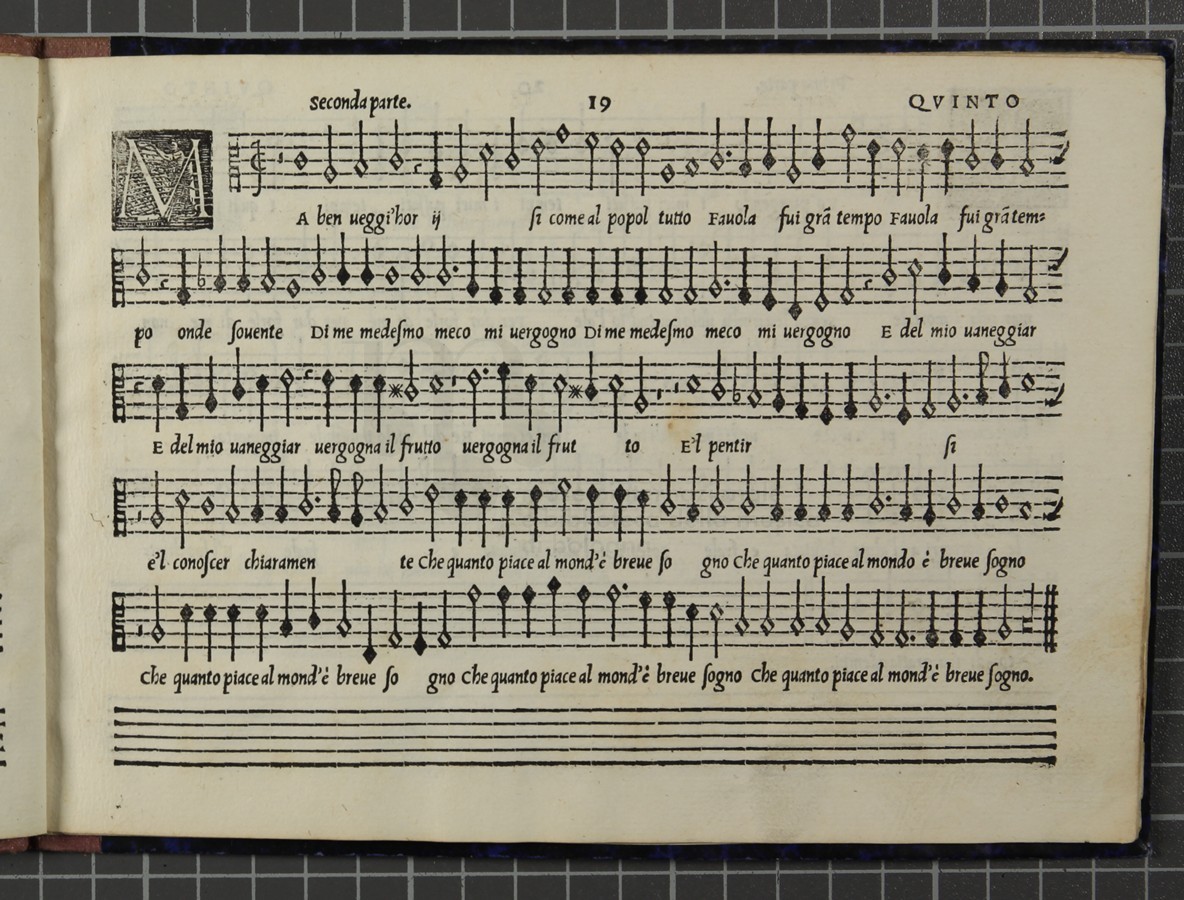 Seconda parte. 19 QVINTO
M A ben ueggi'hor ij ſi come al popol tutto Fauola fui grã tempo Fauola fui grã tem=
po onde ſouente Di me medeſmo meco mi uergogno Di me medeſmo meco mi uergogno E del mio uaneggiar
E del mio uaneggiar uergogna il frutto uergogna il frut to E'l pentir ſi
e'l conoſcer chiaramen te Che quanto piace al mond'è breue ſo gno Che quanto piace al mondo è breue ſogno
Che quanto piace al mond'è breue ſo gno Che quanto piace al mond'è breue ſogno Che quanto piace al mond'è breue ſogno.